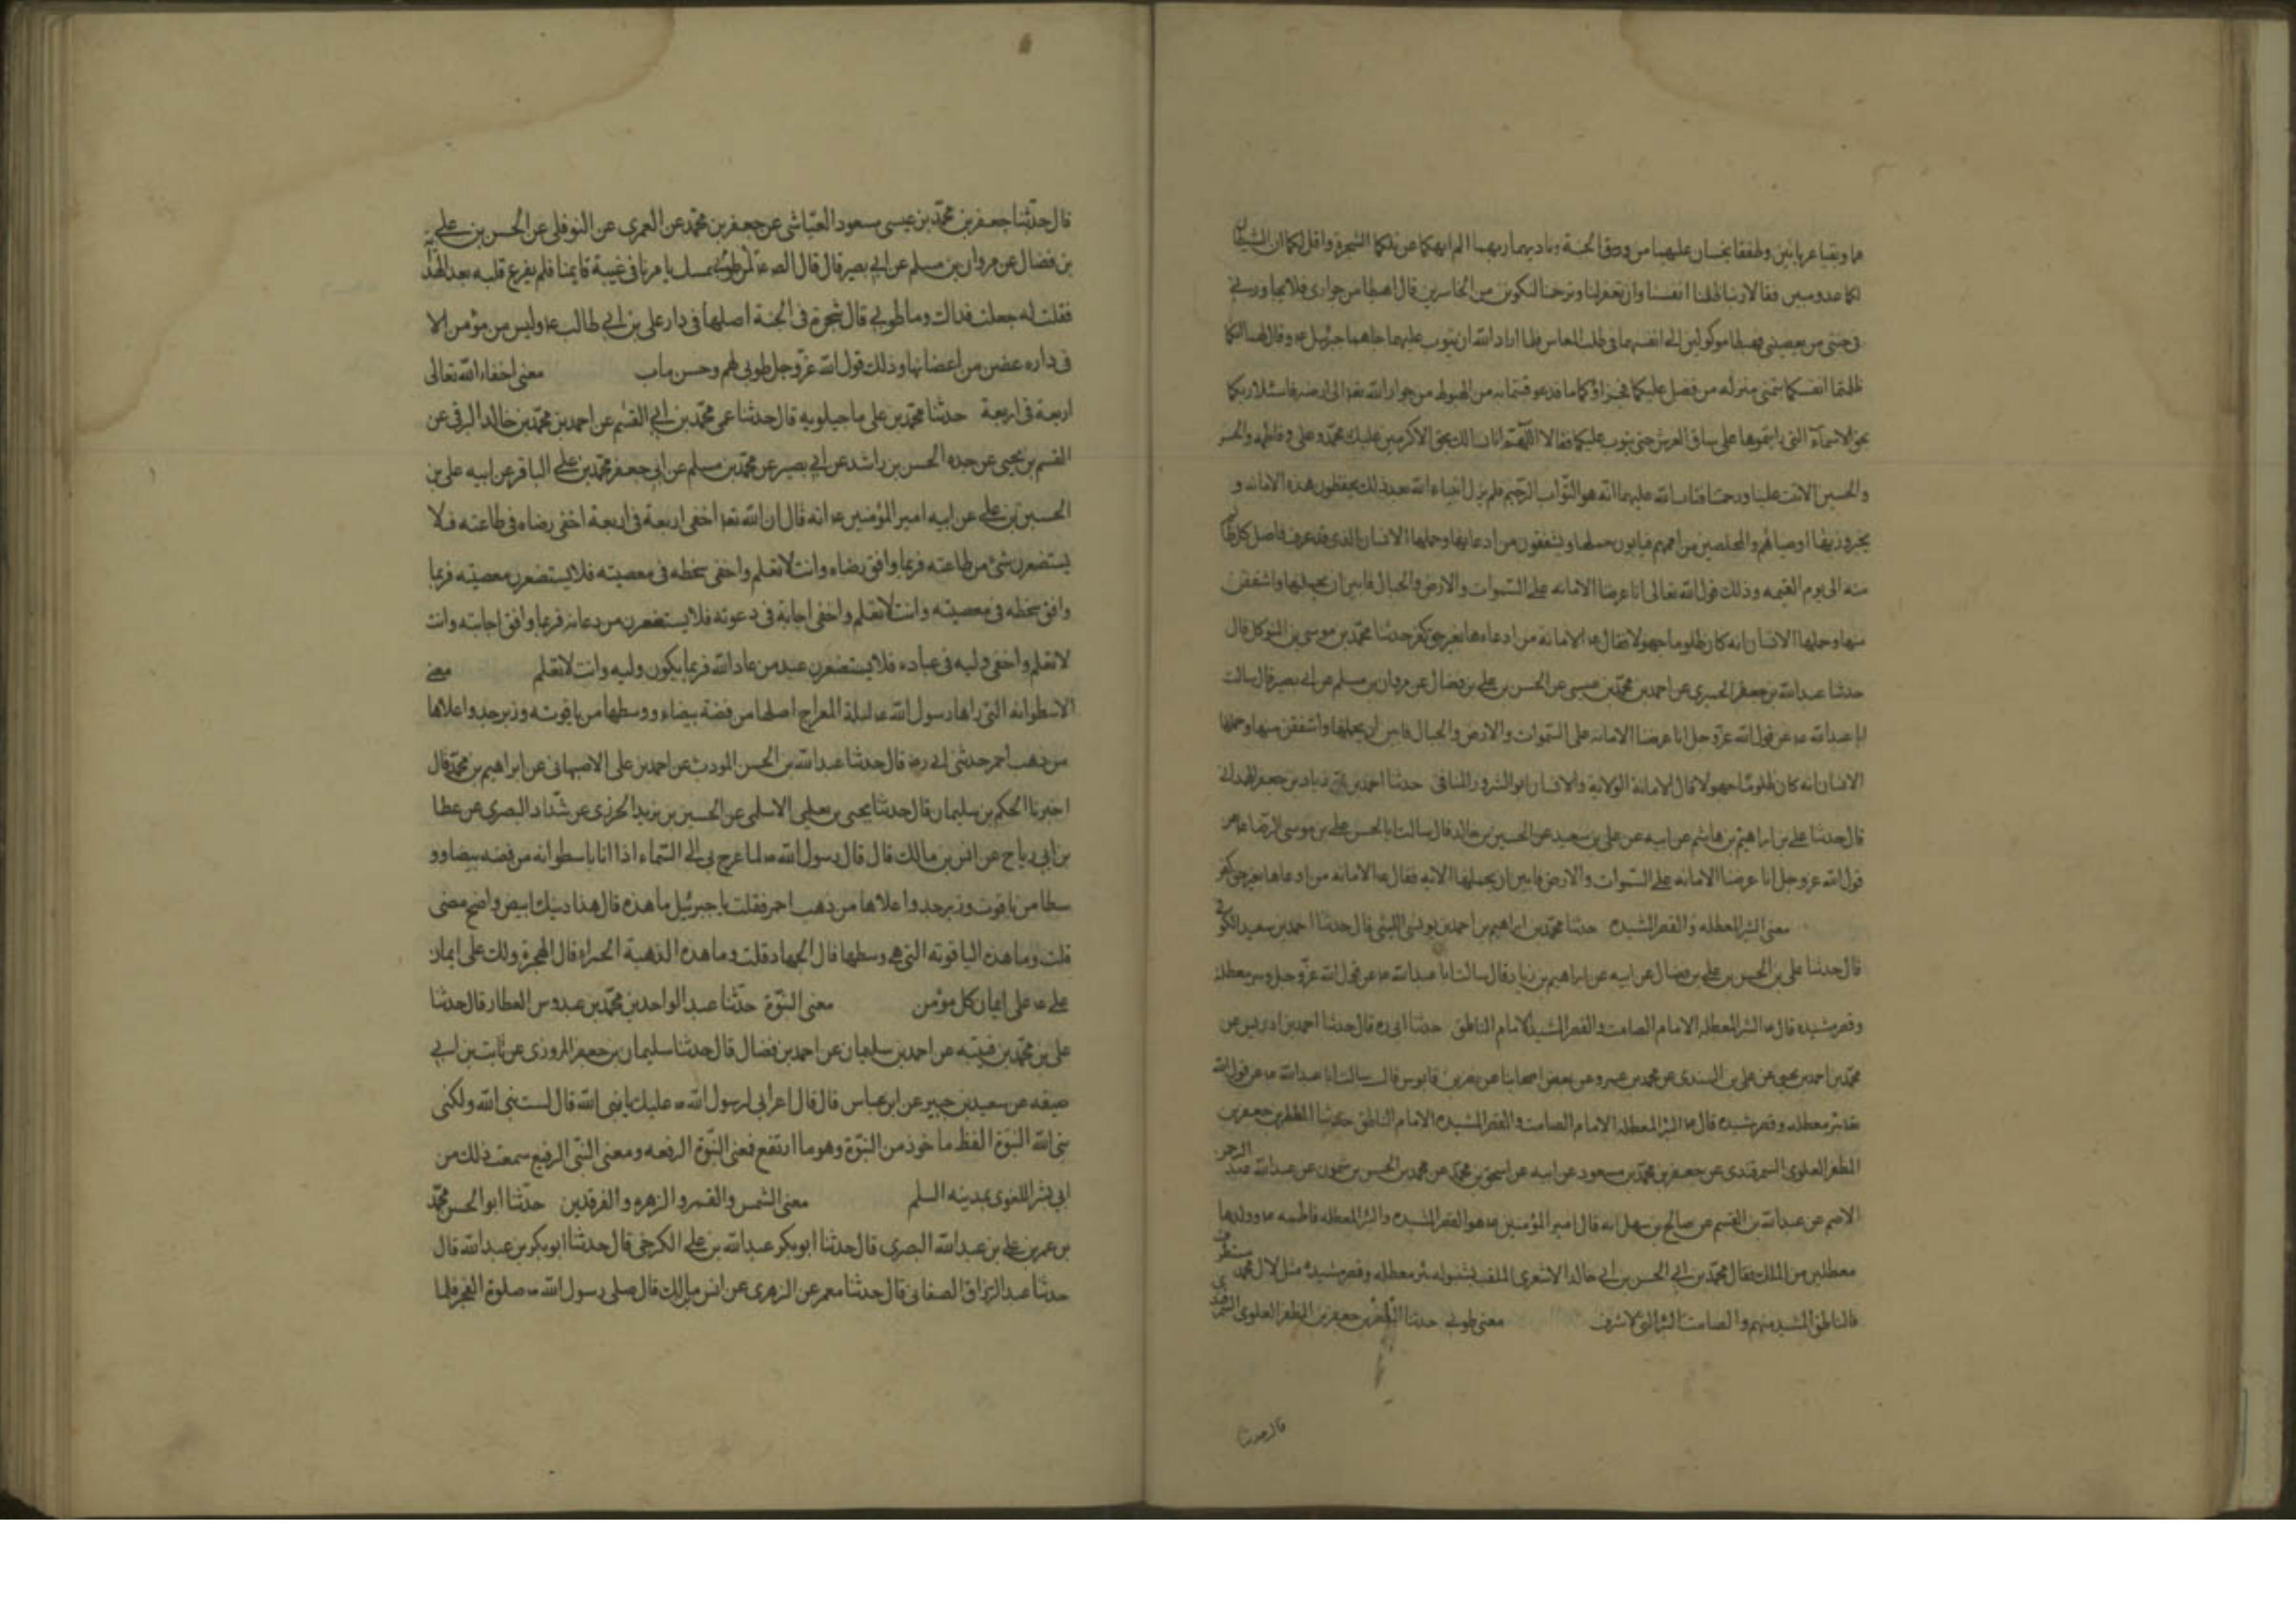 هما وبقيا عريانين وطفقا يخصفان عليهما من ورق الجنة وناديهما ربهما الم انهكما عن تلكما الشجرة واقل لكما ان الشيطان
لكما عدو مبين فقالا ربنا ظلمنا انفسنا وان لم تغفر لنا وترحمنا لنكونن من الخاسرين قال اهبطا من جواري فلا يجاورني
في جنتي من يعصيني فهبطا موكولين الى انفسهما في طلب المعاش فلما اراد الله ان يتوب عليهما جاهما جبرئيل ع وقال لهما انكما
ظلمتما انفسكما بتمنى منزلة من فضل عليكما فجزاؤكما ما قد عوقبتما به من الهبوط من جوار الله تعالى الى ارضه فاسئلا ربكما
بحق الاسماء التي رايتموها على ساق العرش حتى يتوب عليكما فقالا اللهم انا نسالك بحق الاكرمين عليك محمد وعلى وفاطمه والحسن
والحسين الا تبت علينا ورحمتنا فتاب الله عليهما انه هو التواب الرحيم فلم يزل انبياء الله بعد ذلك يحفظون هذه الامانه و
يخبرون بها اوصياهم والمخلصين من اممهم فيابون حملها ويشفقون من ادعايها وحملها الانسان الذي قد عرف فاصل كل ظلم
منه الى يوم القيمه وذلك قول الله تعالى انا عرضنا الامانه على السموات والارض والجبال فابين ان يحملنها واشفقن
منها وحملها الانسان انه كان ظلوما جهولا فقال ع الامانة من ادعاها بغير حق كفر حدثنا محمد بن موسى بن المتوكل قال
حدثنا عبد الله بن جعفر الحميري عن احمد بن محمد بن عيسى عن الحسن بن علي بن فضال عن مروان بن مسلم عن ابي بصير قال سالت
ابا عبد الله ع عن قول الله عز وجل انا عرضنا الامانه على السموات والارض والجبال فابين ان يحملنها واشفقن منها وحملها
الانسان انه كان ظلوما جهولا قال الامانة الولاية والانسان ابو الشرور المنافق حدثنا احمد بن زياد بن جعفر الهمداني
قال حدثنا علي بن ابراهيم بن هاشم عن ابيه عن علي بن سعيد عن الحسين بن خالد قال سالت ابا الحسن علي بن موسى الرضا ع عن
قول الله عز وجل انا عرضنا الامانه على السموات والارض فابين ان يحملنها الايه فقال ع الامانه من ادعاها بغير حق كفر
معنى البئر المعطله والقصر المشيد حدثنا محمد بن ابراهيم بن احمد بن يونس الليثي قال حدثنا احمد بن سعيد الكوفي
قال حدثنا علي بن الحسن بن علي بن فضال عن ابيه عن ابراهيم بن زياد قال سالت ابا عبد الله ع عن قول الله عز وجل وبئر معطلة
وقصر مشيد قال ع البئر المعطله الامام الصامت والقصر المشيد الامام الناطق حدثنا ابي ره قال حدثنا احمد بن ادريس عن
محمد بن احمد بن يحيى عن علي بن السندى عن محمد بن عمرو عن بعض اصحابنا عن نصر بن قابوس قال سالت ابا عبد الله ع عن قول الله
وبئر معطله وقصر مشيد قال ع البئر المعطله الامام الصامت والقصر المشيد الامام الناطق حدثنا المظفر بن جعفر بن
المظفر العلوى السمرقندى عن جعفر بن محمد بن مسعود عن ابيه عن اسحق بن محمد عن محمد بن الحسن بن شمون عن عبد الله بن عبد الرحمن
الاصم عن عبد الله بن القسم عن صالح بن سهل انه قال امير المؤمنين ع هو القصر المشيد والبئر المعطله فاطمه ع وولدها
معطلين من الملك وقال محمد بن ابي الحسن بن ابي خالد الاشعري الملقب بشنبوله بئر معطله وقصر مشيد مثل لال محمد مستطرف
فالناطق المشيد منهم والصامت البئر التي لا تنزف معنى طوبى حدثنا المظفر بن جعفر بن المظفر العلوى السمرقندي
قال حدثنا
قال حدثنا جعفر بن محمد بن عيسى مسعود العياشى عن جعفر بن محمد عن العمرى عن النوفلى عن الحسن بن على
بن فضال عن مروان بن مسلم عن ابي بصير قال قال الص ع طوبى لمن تمسك بامرنا في غيبة قايمنا فلم يفزع قلبه بعد الهداية
فقلت له جعلت فداك وما طوبى قال شجرة في الجنة اصلها في دار على بن ابي طالب ع وليس من مؤمن الا
في داره غضن من اغضانها وذلك قول الله عز وجل طوبى لهم وحسن ماب معنى اخفاء الله تعالى
اربعة في اربعة حدثنا محمد بن على ماجيلويه قال حدثنا عمى محمد بن ابي القسم عن احمد بن محمد بن خالد البرقي عن
القسم بن يحيى عن جده الحسن بن راشد عن ابي بصير عن محمد بن مسلم عن ابي جعفر محمد بن على الباقر عن ابيه على بن
الحسين بن على عن ابيه امير المؤمنين ع انه قال ان الله تعالى اخفى اربعة في اربعة اخفى رضاه في طاعته فلا
يستصغرن شئ من طاعته فربما وافق رضاه وانت لا تعلم واخفى سخطه في معصيته فلا يستصغرن معصيته فربما
وافق سخطه في معصيته وانت لا تعلم واخفى اجابة في دعوته فلا يستصغرن من دعائه فربما وافق اجابته وانت
لا تعلم واخفى وليه في عباده فلا يستصغرن عبد من عباد الله فربما يكون وليه وانت لا تعلم معنى
الاسطوانه التي راها رسول الله ص ليلة المعراج اصلها من فضة بيضاء ووسطها من ياقوته وزبرجد واعلاها
من ذهب احمر حدثني ابي ره قال حدثنا عبد الله بن الحسن المودب عن احمد بن على الاصبهانى عن ابراهيم بن محمد قال
اخبرنا الحكم بن سليمان قال حدثنا يحيى بن يعلى الاسلمى عن الحسين بن يزيد الخرزى عن شداد البصرى عن عطا
بن ابي رباح عن انس بن مالك قال قال رسول الله ص لما عرج بى الى السماء اذا انا باسطوانه من فضه بيضا وو
سطها من ياقوت وزبرجد واعلاها من ذهب احمر فقلت يا جبرئيل ما هذه قال هذا دينك ابيض واضح مضى
قلت وما هذه الياقوته التي هي وسطها قال الجهاد قلت وما هذه الذهبة الحمراء قال الهجرة ولذلك على ايمان
على ع على ايمان كل مؤمن معنى النبوة حدثنا عبد الواحد بن محمد بن عبدوس العطار قال حدثنا
على بن محمد بن قتيبه عن احمد بن سليمان عن احمد بن فضال قال حدثنا سليمان بن جعفر المروزى عن ثابت بن ابي
صفيه عن سعيد بن جبير عن ابن عباس قال قال اعرابى لرسول الله ص عليك يا نبى الله قال لست بنبى الله ولكنى
نبى الله النبوة الفظ ماخوذ من النبوة وهو ما ارتفع فمعنى النبوة الرفعه ومعنى النبى الرفيع سمعت ذلك من
ابي بشر اللغوى بمدينه السلم معنى الشمس والقمر والزهره والفرقدين حدثنا ابو الحسن محمد
بن عمر بن على بن عبد الله البصرى قال حدثنا ابو بكر عبد الله بن على الكرخى قال حدثنا ابو بكر بن عبد الله قال
حدثنا عبد الرزاق الصغانى قال حدثنا معمر عن الزهرى عن انس بن مالك قال صلى رسول الله ص صلوة الفجر فلما